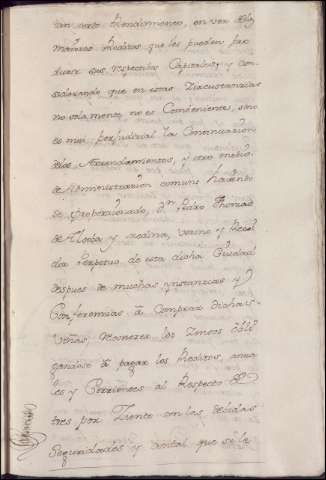 tan corto Rendimento, en vez de los
maiores Reditos que les pueden pro
ducir sus respectibos Capitales; y con
siderando que en estas Circustancias
no solamente no es Combeniente, sino
es mui perjudicial la Continuacion
de los Arrendamientos, y otro medio
de Administracion comun; haviendo
se proporcionado, Dn Pedro Thomas
de y medina, vecino y Regi
dor Perpetuo de esta dicha Ciudad
despues de muchas ynstancias y
Conferencias â comprar dichas
Veñas, Reconozer los Zensos obli
gandose â pagar los Reditos, anua
les y Corrientes al Respecto de
tres por Ziento con las devidas
Seguridades y Caudal que se le